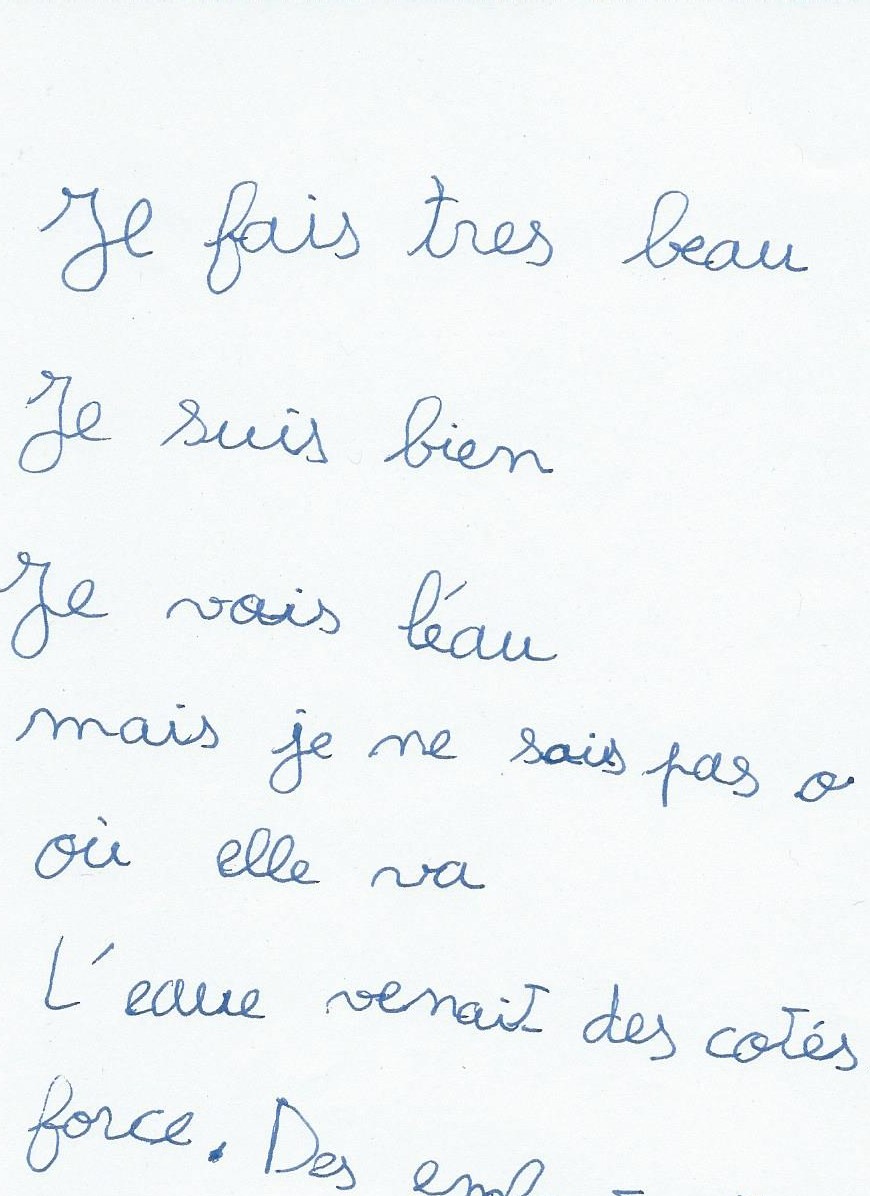 Je fais tres beau
Je suis bien
Je vais l'éau
mais je ne sais pas o
où elle va
L'eaue venait des cotés
force. Des